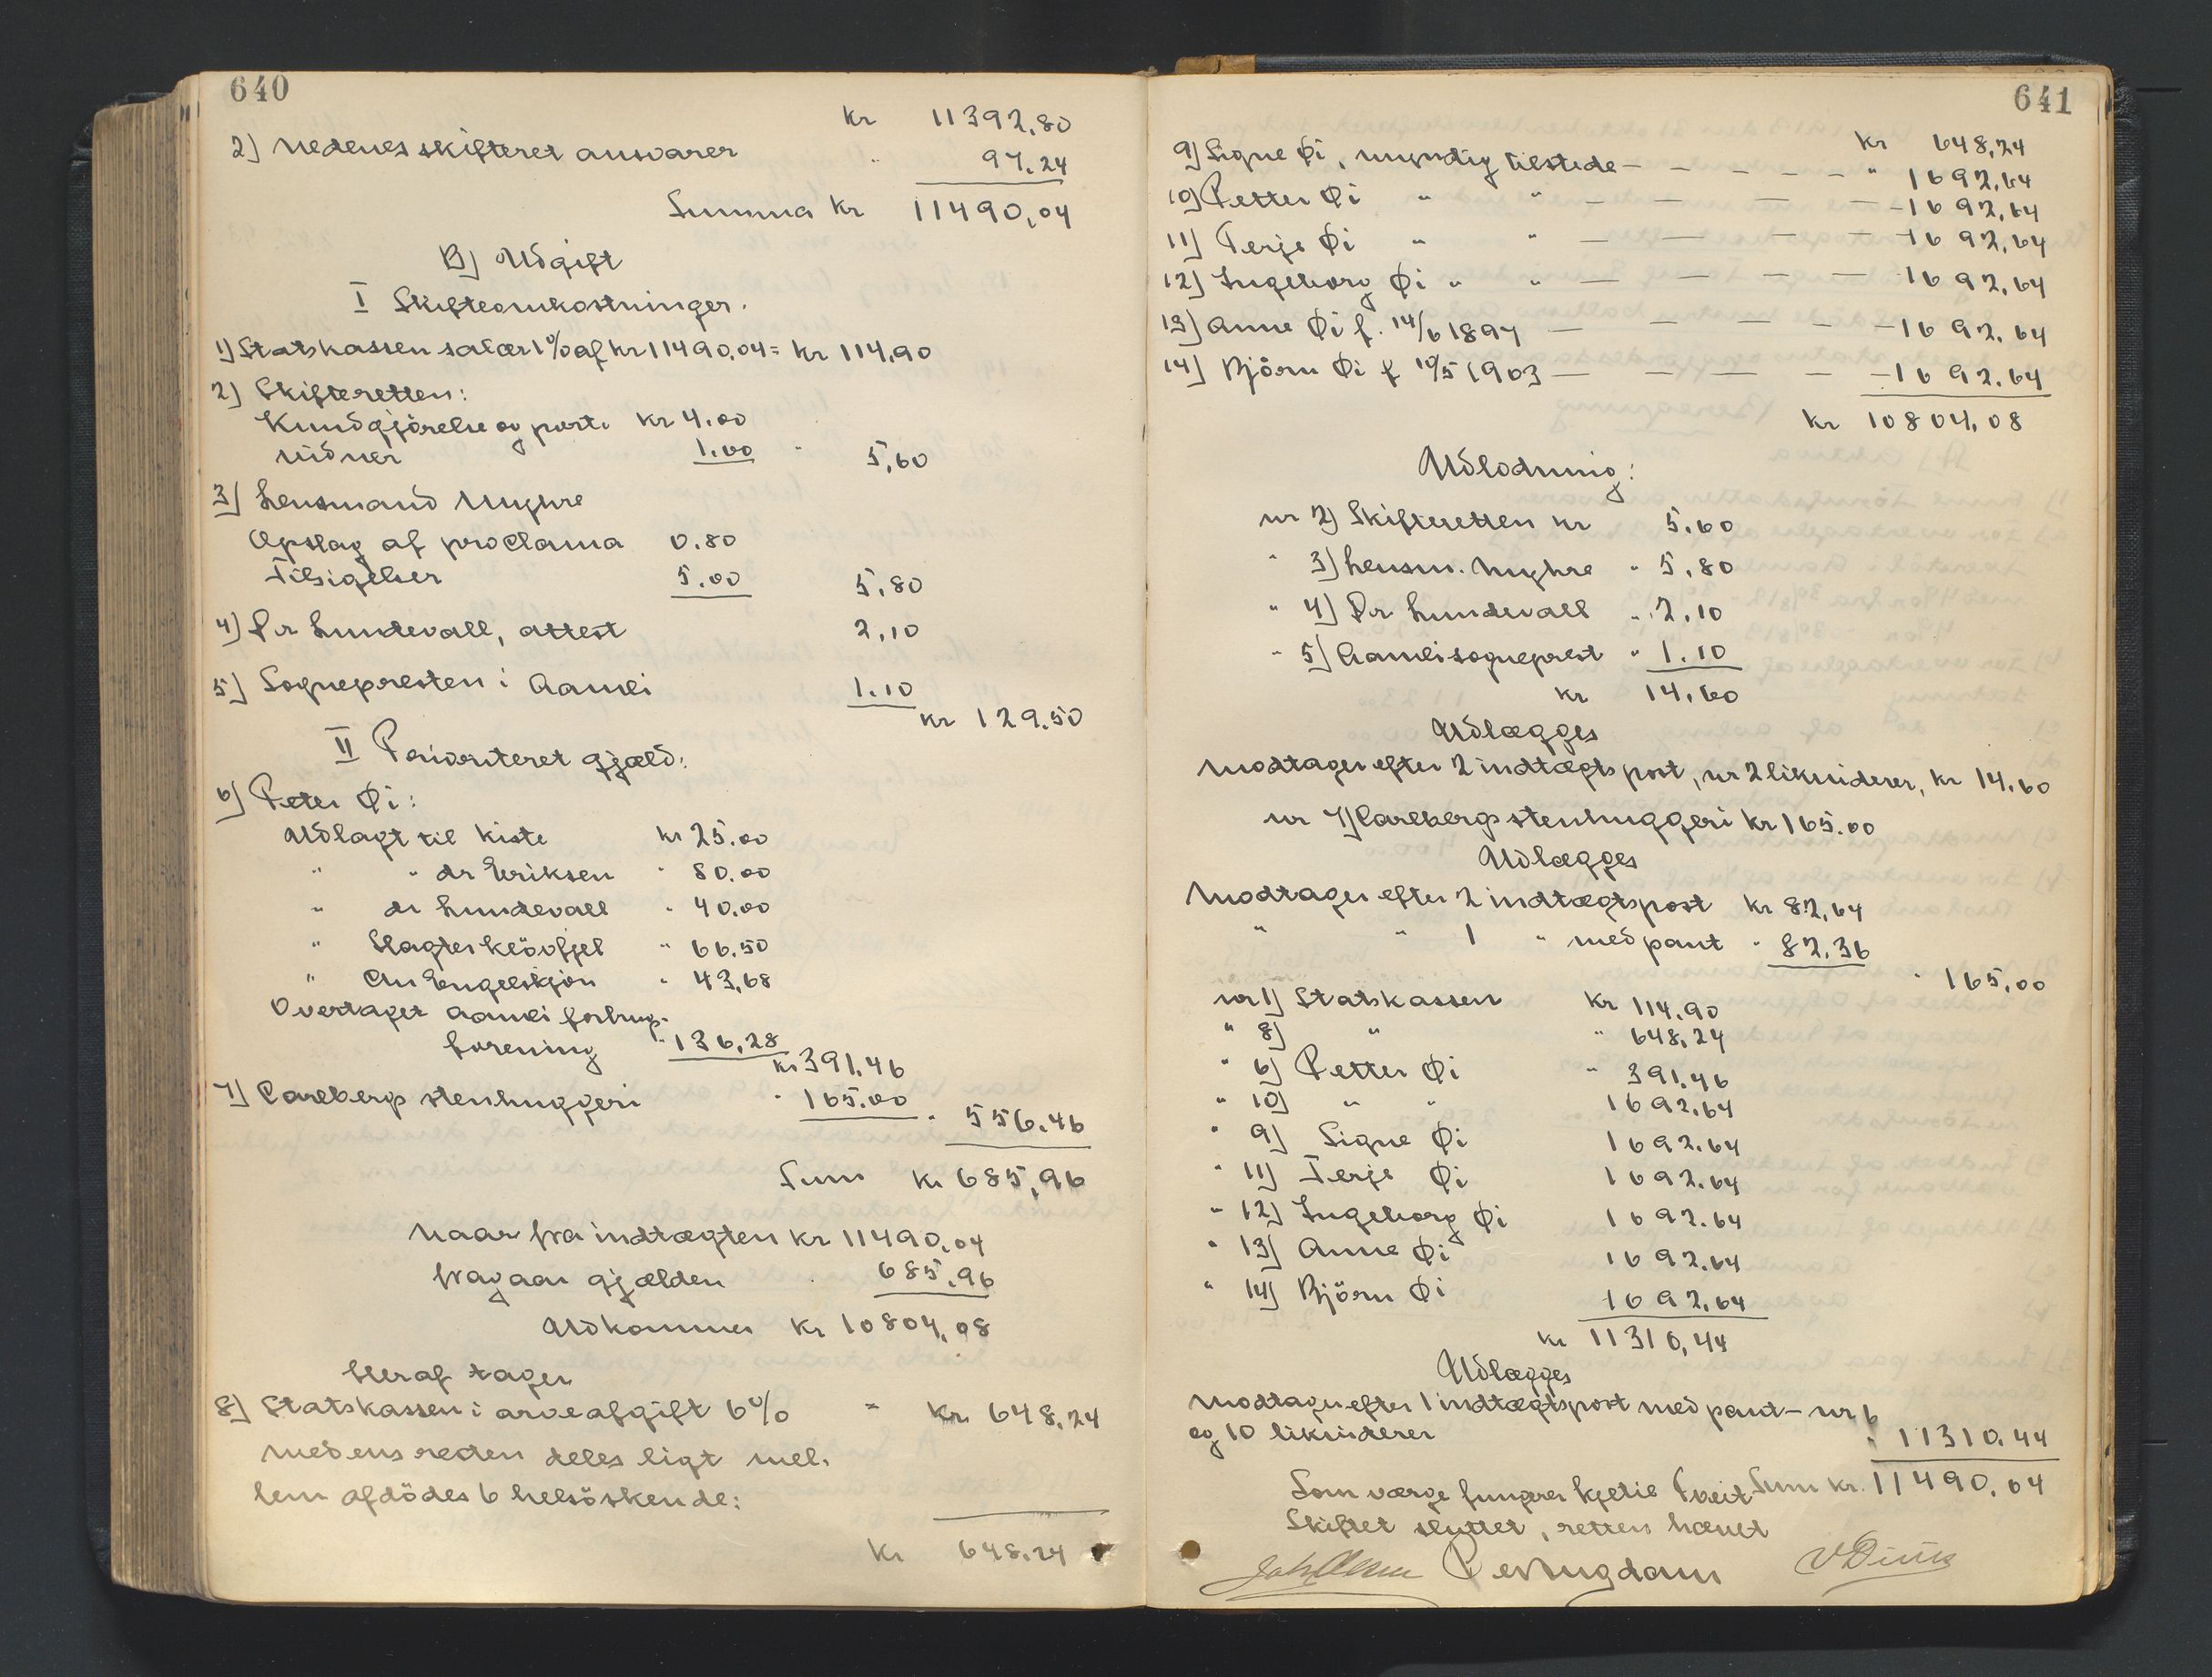 640
kr 11392,80
2) Nedenes skifteret ansvarer " 97.24
Summa kr 11490,04
B) Udgift
I Skifteomkostninger.
1) Statskassen salær 1% af kr 11490,04 = kr 114,90
2) Skifteretten:
Kundgjörelse og porto kr 4.00
vidner 1.00 " 5,60
3) Lensmand Myhre
Opslag af proclama 0.80
Tilsigelser 5.00 5,80
4) Dr Lundevall, attest 2,10
5) Sognepresten i Aamli 1.10
kr 129.50
II Prioriteret gjæld:
6) Peter Øi:
Udlagt til kiste kr 25.00
" " dr Eriksen " 80.00
" dr Lundevall " 40.00
" Slagter Klövfjel " 66.50
" An Engelskjön " 43,68
Overtaget Aamli forbrugs-
forening " 136,28
kr 391,46
7) Carlbergs stenhuggeri " 165.00 " 556.46
Sum kr 685,96
Naar fra indtægten kr 11490,04
fragaar gjælden " 685,96
Udkommer kr 10804,08
Heraf tager
8) Statskassen i arveafgift 6% = kr 648,24
medens resten deles ligt mel-
lem afdödes 6 helsöskende:
kr 648.24
641
kr 648,24
9) Signe Øi, myndig tilstede — — — — — " 1692,64
10) Petter Øi " " — — — — 1692,64
11) Terje Øi " " — — — — 1692,64
12) Ingeborg Øi " " — — — — 1692,64
13) Anne Øi f. 14/6 1897 — — — — 1692.64
14) Björn Øi f 10/5 1903 — — — — 1692.64
kr 10804,08
Udlodning:
nr 2) Skifteretten kr 5.60
" 3) Lensm. Myhre " 5,80
" 4) Dr Lundevall " 2,10
" 5) Aamli sogneprest " 1.10
kr 14,60
Udlægges
Modtager efter 2 indtægtspost, nr 2 likviderer, kr 14.60
nr 7) Carlbergs stenhuggeri kr 165.00
Udlægges
Modtager efter 2 indtægtspost kr 82,64
" " 1 " med pant " 82,36
" 165,00
nr 1) Statskassen kr 114.90
" 8) " " 648,24
" 6) Petter Øi " 391.46
" 10) " " 1692.64
" 9) Signe Øi 1692.64
" 11) Terje Øi 1692.64
" 12) Ingeborg Øi 1692.64
" 13) Anne Øi 1692.64
" 14) Björn Øi 1692.64
kr 11310,44
Udlægges
Modtager efter 1 indtægtspost med pant – nr 6
og 10 likviderer " 11310.44
Som værge fungerer Kjetil Tveit Sum kr. 11490,04
Skiftet sluttet, retten hævet